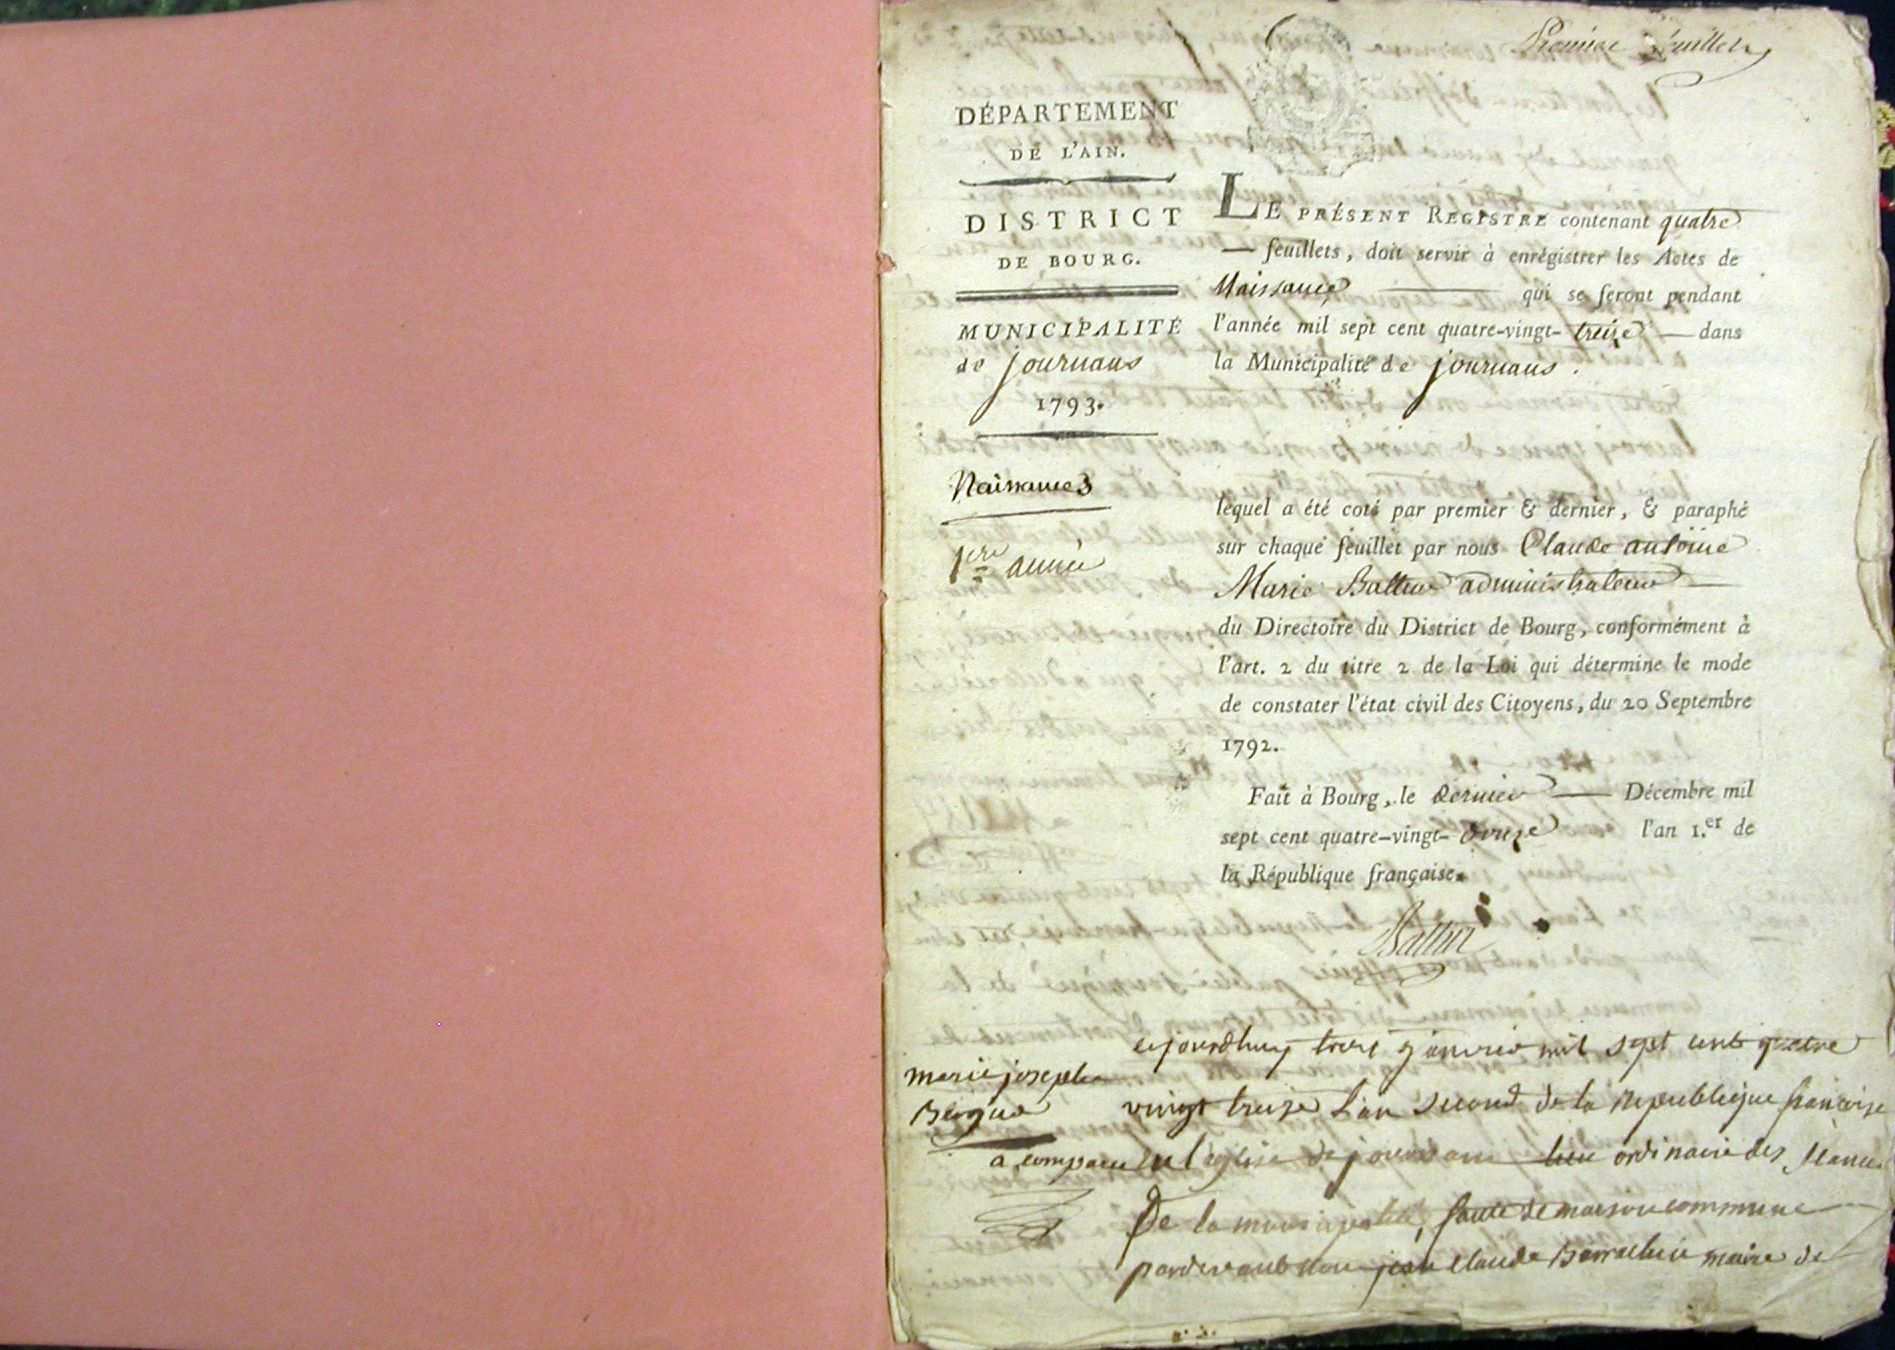 Premier feuillet
DÉPARTEMENT
DE L'AIN.
DISTRICT
DE BOURG.
MUNICIPALITÉ
de journans
1793.
Naissances
1ere année
LE PRÉSENT REGISTRE contenant quatre
— feuillets, doit servir à enrégistrer les Actes de
Naissance — qui se feront pendant
l'année mil sept cent quatre-vingt-treize — dans
la Municipalité de journans.
lequel a été coté par premier & dernier, & paraphé
sur chaque feuillet par nous Claude antoine
Marie administrateur —
du Directoire du District de Bourg, conformément à
l'art. 2 du titre 2 de la Loi qui détermine le mode
de constater l'état civil des Citoyens, du 20 Septembre
1792.
Fait à Bourg, le dernier — Décembre mil
sept cent quatre-vingt-douze l'an 1.er de
la République française.
marie joseph
cejourdhuy trois janvie mil sept cent quatre
vingt treize l'an second de la Republique francoise
a comparu en l'eglise de journans lieu ordinaire des séances
De la municipalité, faute de maison commune
pardevant nous jean Claude maire de